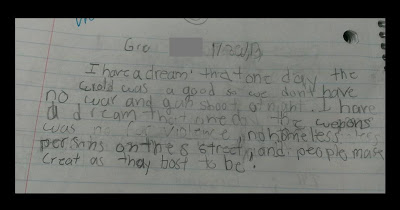 Gra 1/20/13
I have a dream that one day the
wrold was a good so we don't have
no war and gun shoot at night. I have
a dream that one day the weapons
was not for violence, no homeless
persins on the street, and people make
Creat as thay bost to be.